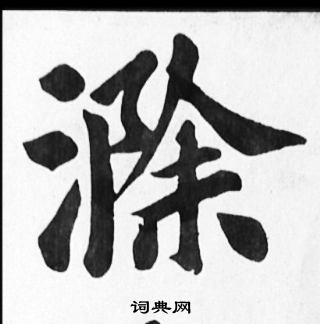 滁
词典网